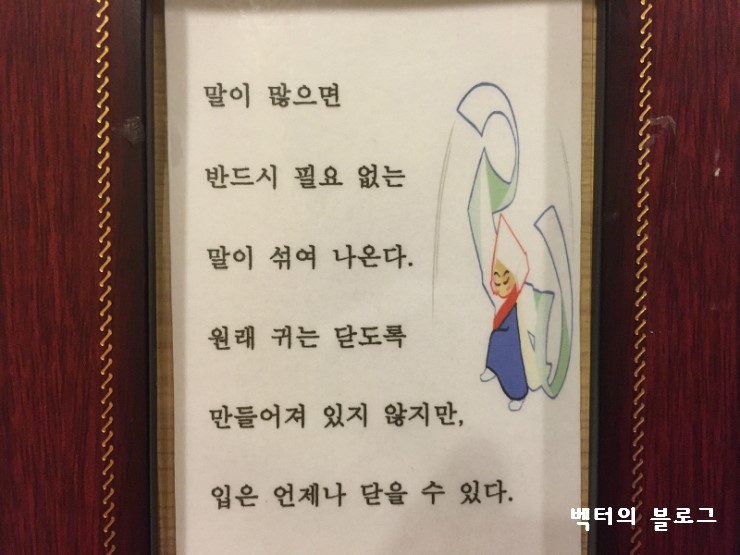 말이 많으면
반드시 필요 없는
말이 섞여 나온다.
원래 귀는 닫도록
만들어져 있지 않지만,
입은 언제나 닫을 수 있다.
벡터의 블로그